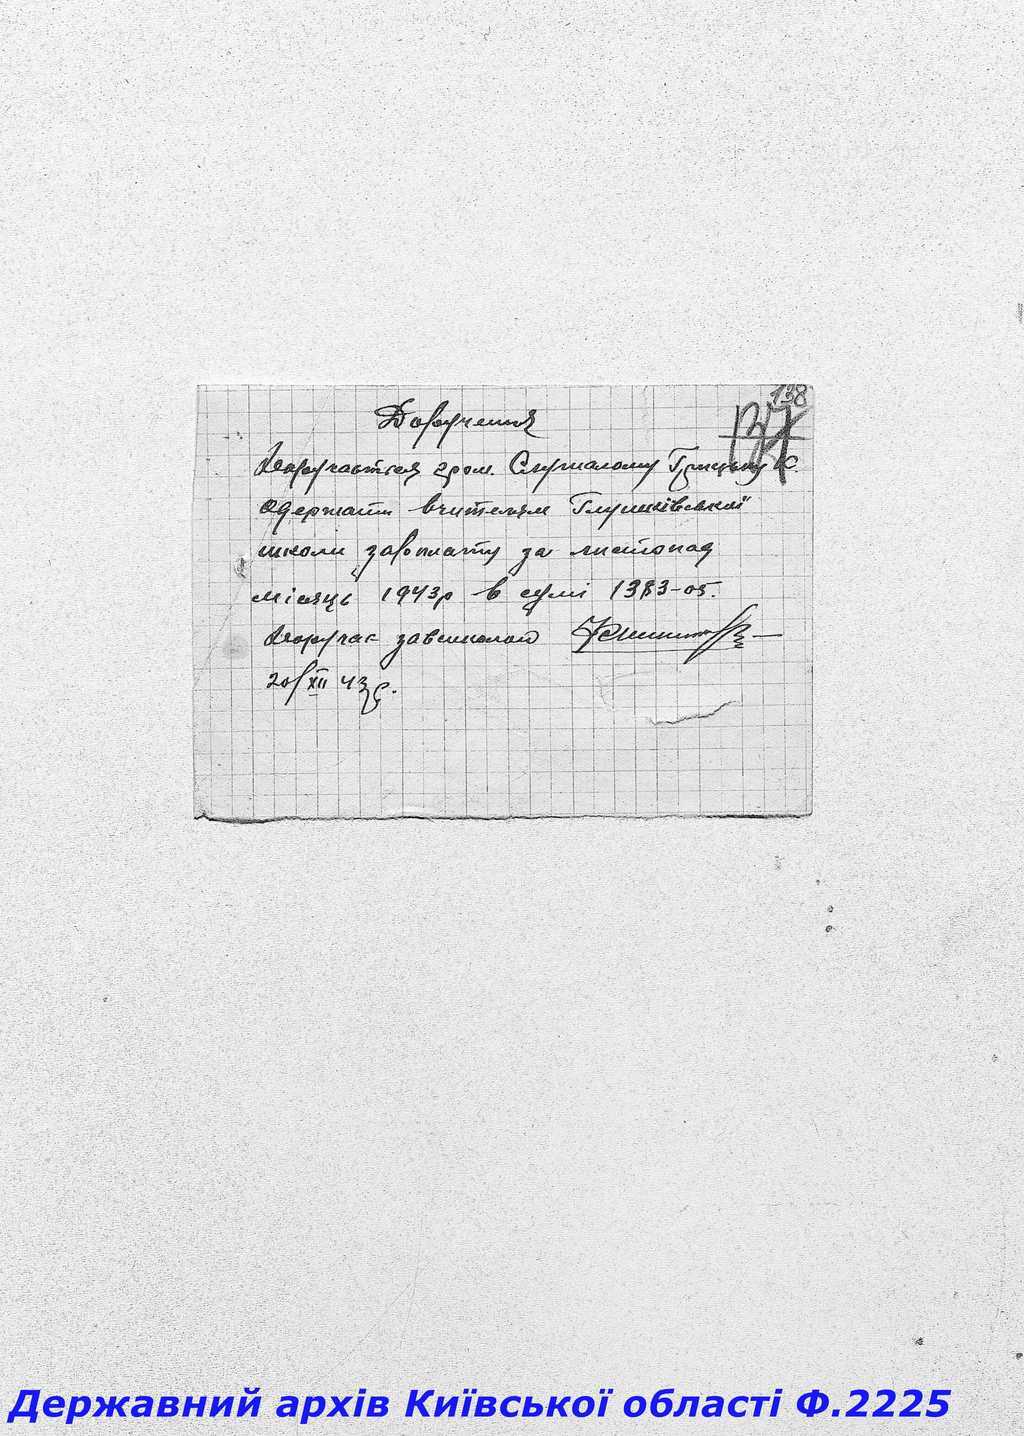 138
137
Доручення
Доручається гром. Смушалому Грицьку К.
одержати вчителям Глушківської
школи зарплату за листопад
місяць 1943р в сумі 1383-05.
Доручає завшколою
20/XII 43р.
Державний архів Київської області Ф.2225